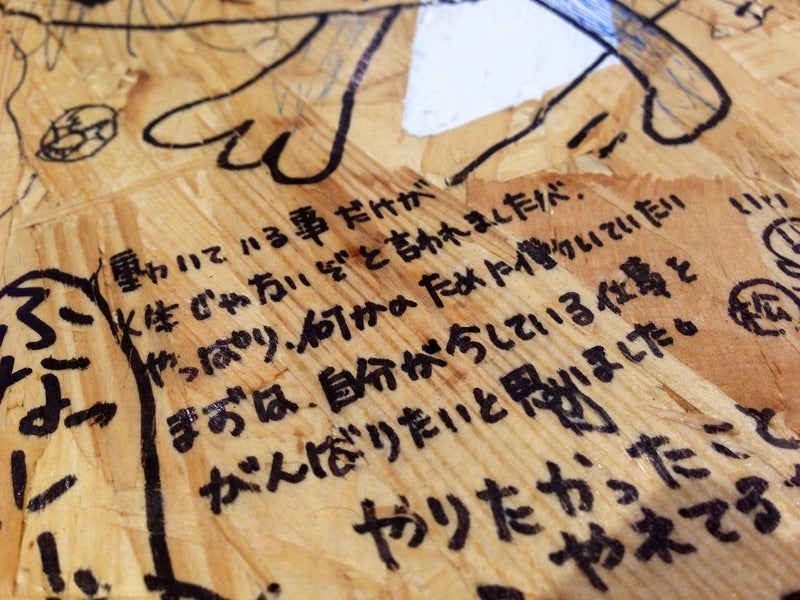 動いている事だけが
人生じゃないぞと言われましたが、
やっぱり、何かのために働いていたい
まずは、自分が今している仕事と
がんばりたいと思いました。
やりたかったこと
や来てる
ふなっ
いい
松